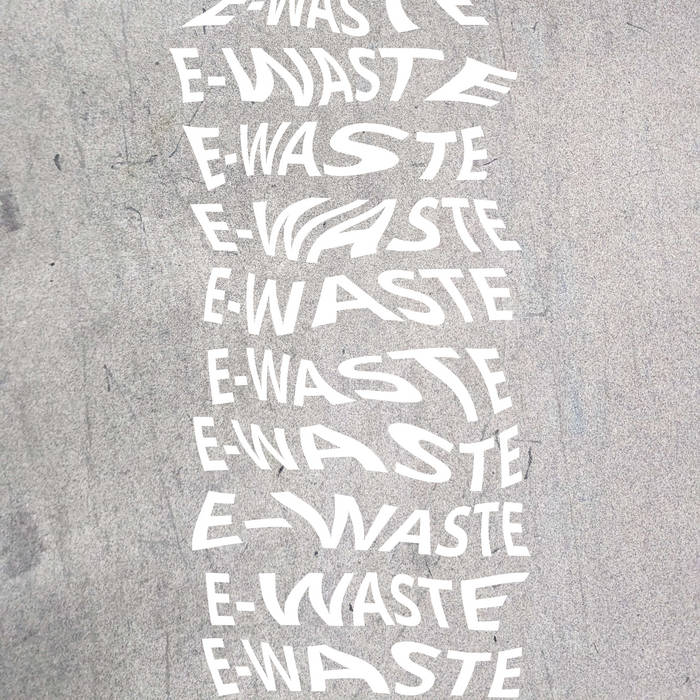 E-WASTE
E-WASTE
E-WASTE
E-WASTE
E-WASTE
E-WASTE
E-WASTE
E-WASTE
E-WASTE
E-WASTE